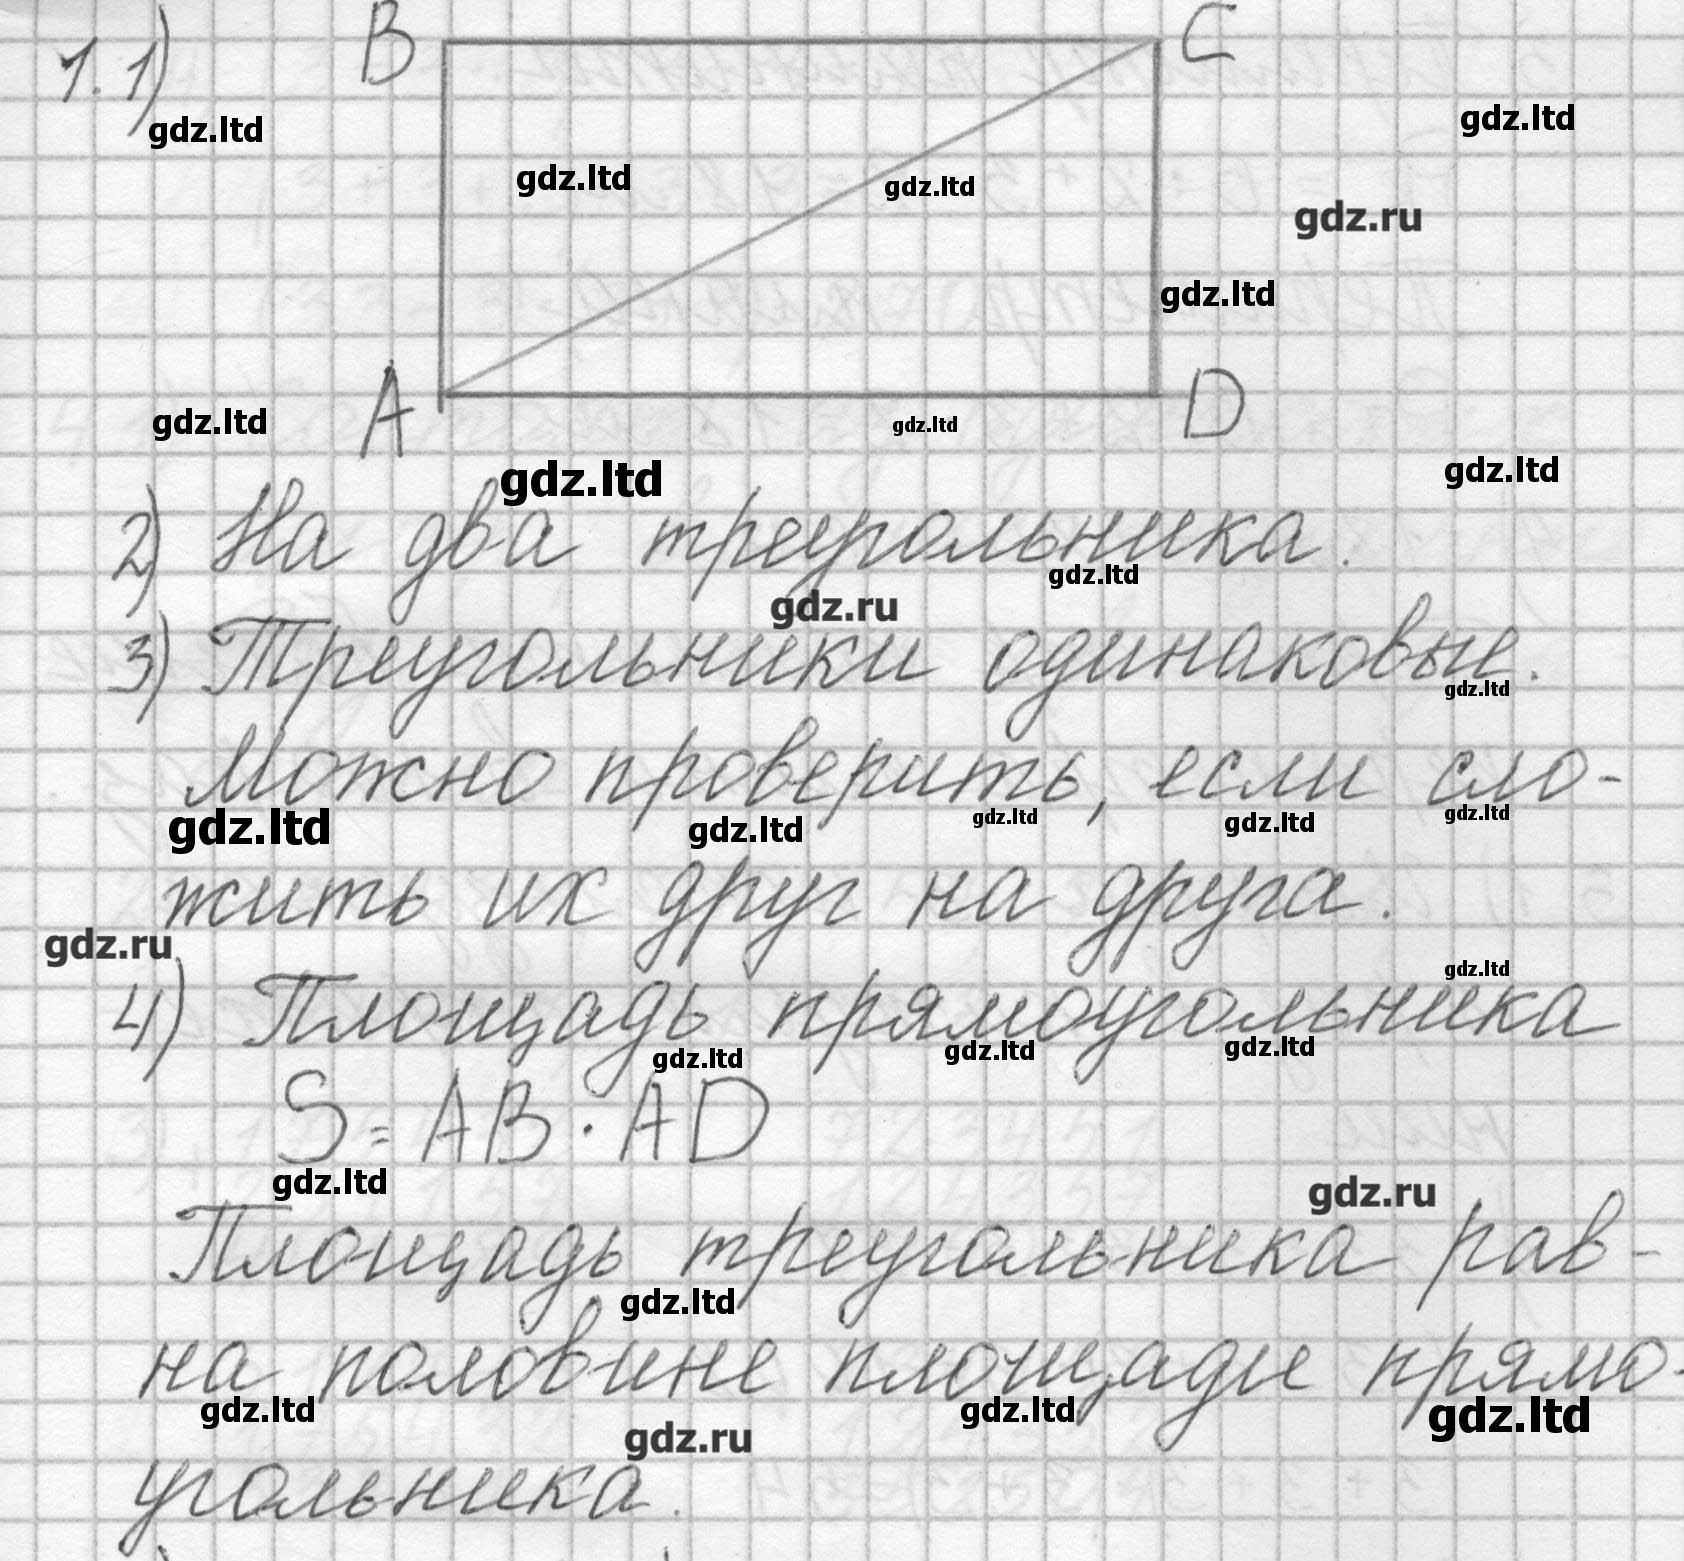 1. 1)
B
C
gdz.ltd
gdz.ltd
gdz.ltd
gdz.ltd
gdz.ru
gdz.ltd
A
D
gdz.ltd
gdz.ltd
gdz.ltd
gdz.ltd
2) На два треугольника.
gdz.ltd
gdz.ru
3) Треугольники одинаковые.
gdz.ltd
Можно проверить, если сло-
gdz.ltd
gdz.ltd
gdz.ltd
gdz.ltd
gdz.ltd
жить их друг на друга.
gdz.ru
gdz.ltd
4) Площадь прямоугольника
gdz.ltd
gdz.ltd
gdz.ltd
S = AB · AD
gdz.ltd
gdz.ru
Площадь треугольника рав-
gdz.ltd
на половине площади прямо-
gdz.ltd
gdz.ltd
gdz.ltd
gdz.ru
угольника.